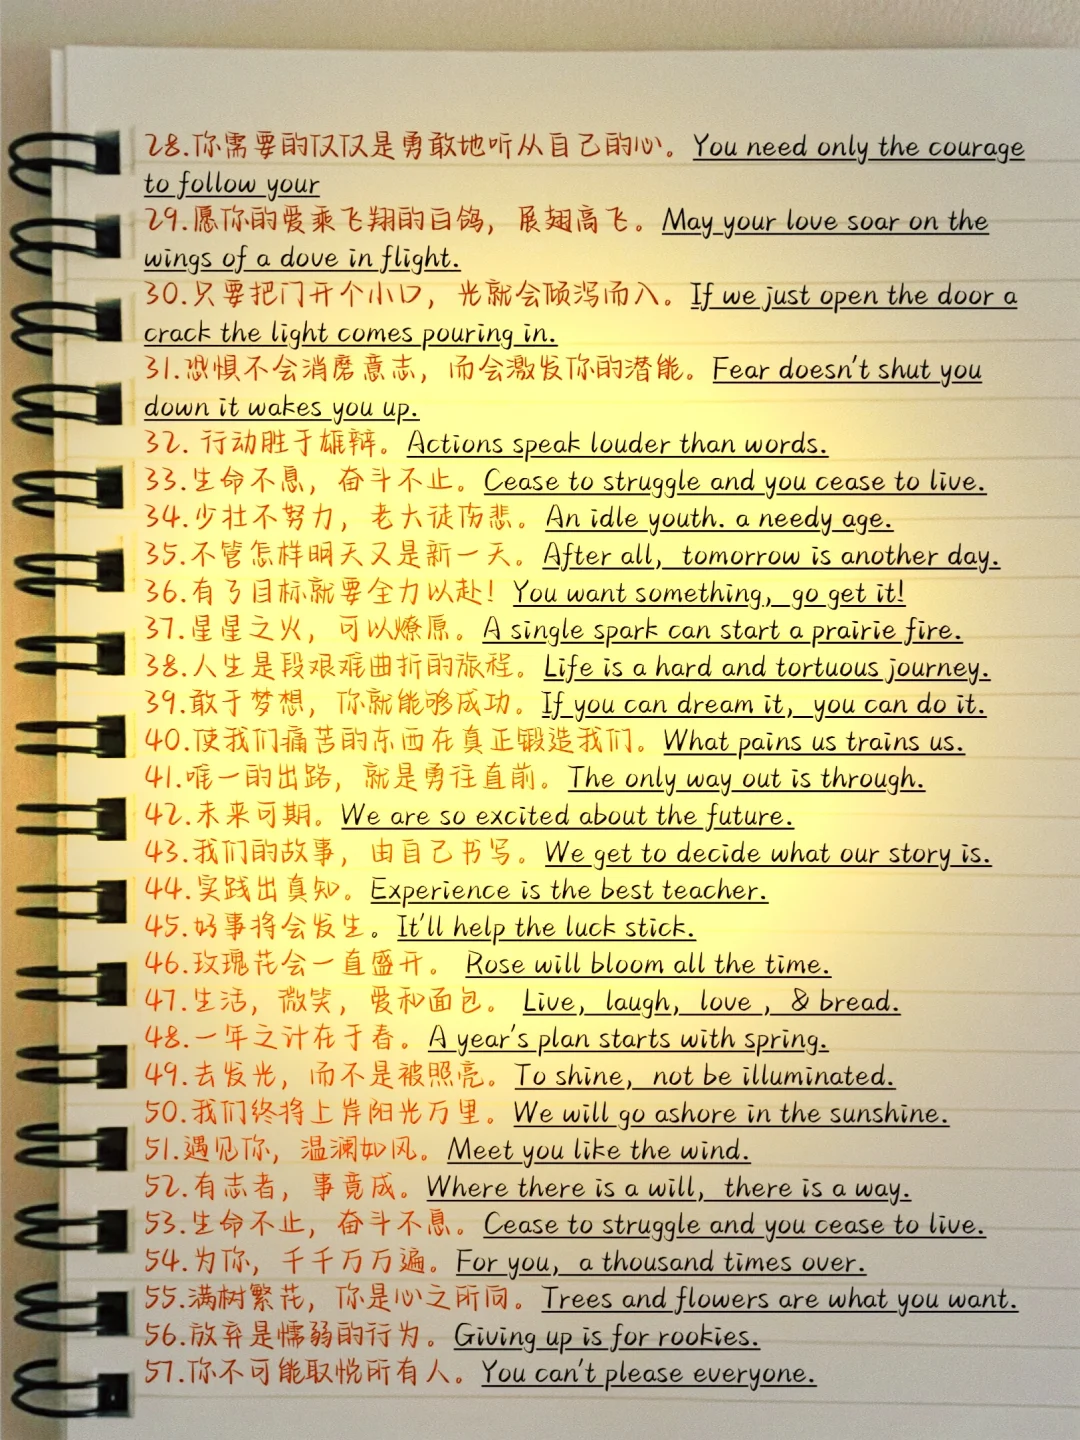 28.你需要的仅仅是勇敢地听从自己的心。You need only the courage
to follow your
29.愿你的爱乘飞翔的白鸽，展翅高飞。May your love soar on the
wings of a dove in flight.
30.只要把门开个小口，光就会倾泻而入。If we just open the door a
crack the light comes pouring in.
31.恐惧不会消磨意志，而会激发你的潜能。Fear doesn't shut you
down it wakes you up.
32. 行动胜于雄辩。Actions speak louder than words.
33.生命不息，奋斗不止。Cease to struggle and you cease to live.
34.少壮不努力，老大徒伤悲。An idle youth. a needy age.
35.不管怎样明天又是新一天。After all, tomorrow is another day.
36.有了目标就要全力以赴！You want something, go get it!
37.星星之火，可以燎原。A single spark can start a prairie fire.
38.人生是段艰难曲折的旅程。Life is a hard and tortuous journey.
39.敢于梦想，你就能够成功。If you can dream it, you can do it.
40.使我们痛苦的东西在真正锻造我们。What pains us trains us.
41.唯一的出路，就是勇往直前。The only way out is through.
42.未来可期。We are so excited about the future.
43.我们的故事，由自己书写。We get to decide what our story is.
44.实践出真知。Experience is the best teacher.
45.好事将会发生。It'll help the luck stick.
46.玫瑰花会一直盛开。Rose will bloom all the time.
47.生活，微笑，爱和面包。Live, laugh, love , & bread.
48.一年之计在于春。A year's plan starts with spring.
49.去发光，而不是被照亮。To shine, not be illuminated.
50.我们终将上岸阳光万里。We will go ashore in the sunshine.
51.遇见你，温澜如风。Meet you like the wind.
52.有志者，事竟成。Where there is a will, there is a way.
53.生命不止，奋斗不息。Cease to struggle and you cease to live.
54.为你，千千万万遍。For you, a thousand times over.
55.满树繁花，你是心之所向。Trees and flowers are what you want.
56.放弃是懦弱的行为。Giving up is for rookies.
57.你不可能取悦所有人。You can't please everyone.